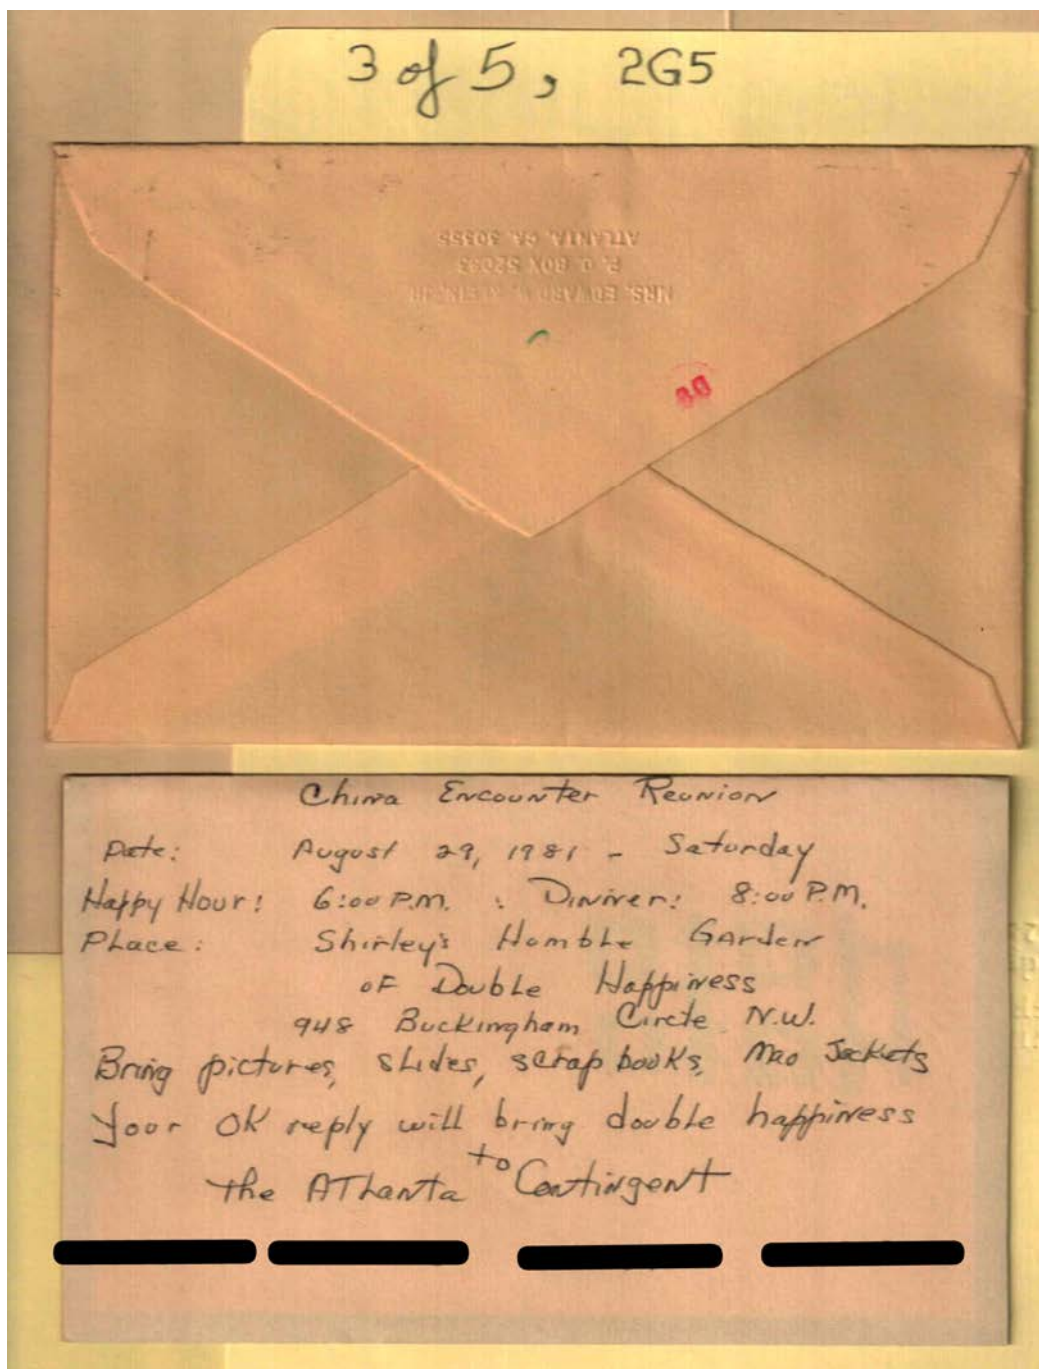 3 of 5, 2G5
MRS. EDWARD
P. O. BOX
ATLANTA, GA. 30355
China Encounter Reunion
Date: August 29, 1981 - Saturday
Happy Hour: 6:00 P.M. : Dinner: 8:00 P.M.
Place: Shirley's Humble Garden
of Double Happiness
948 Buckingham Circle N.W.
Bring pictures, slides, scrap books, Mao Jackets
Your OK reply will bring double happiness
to
the Atlanta Contingent